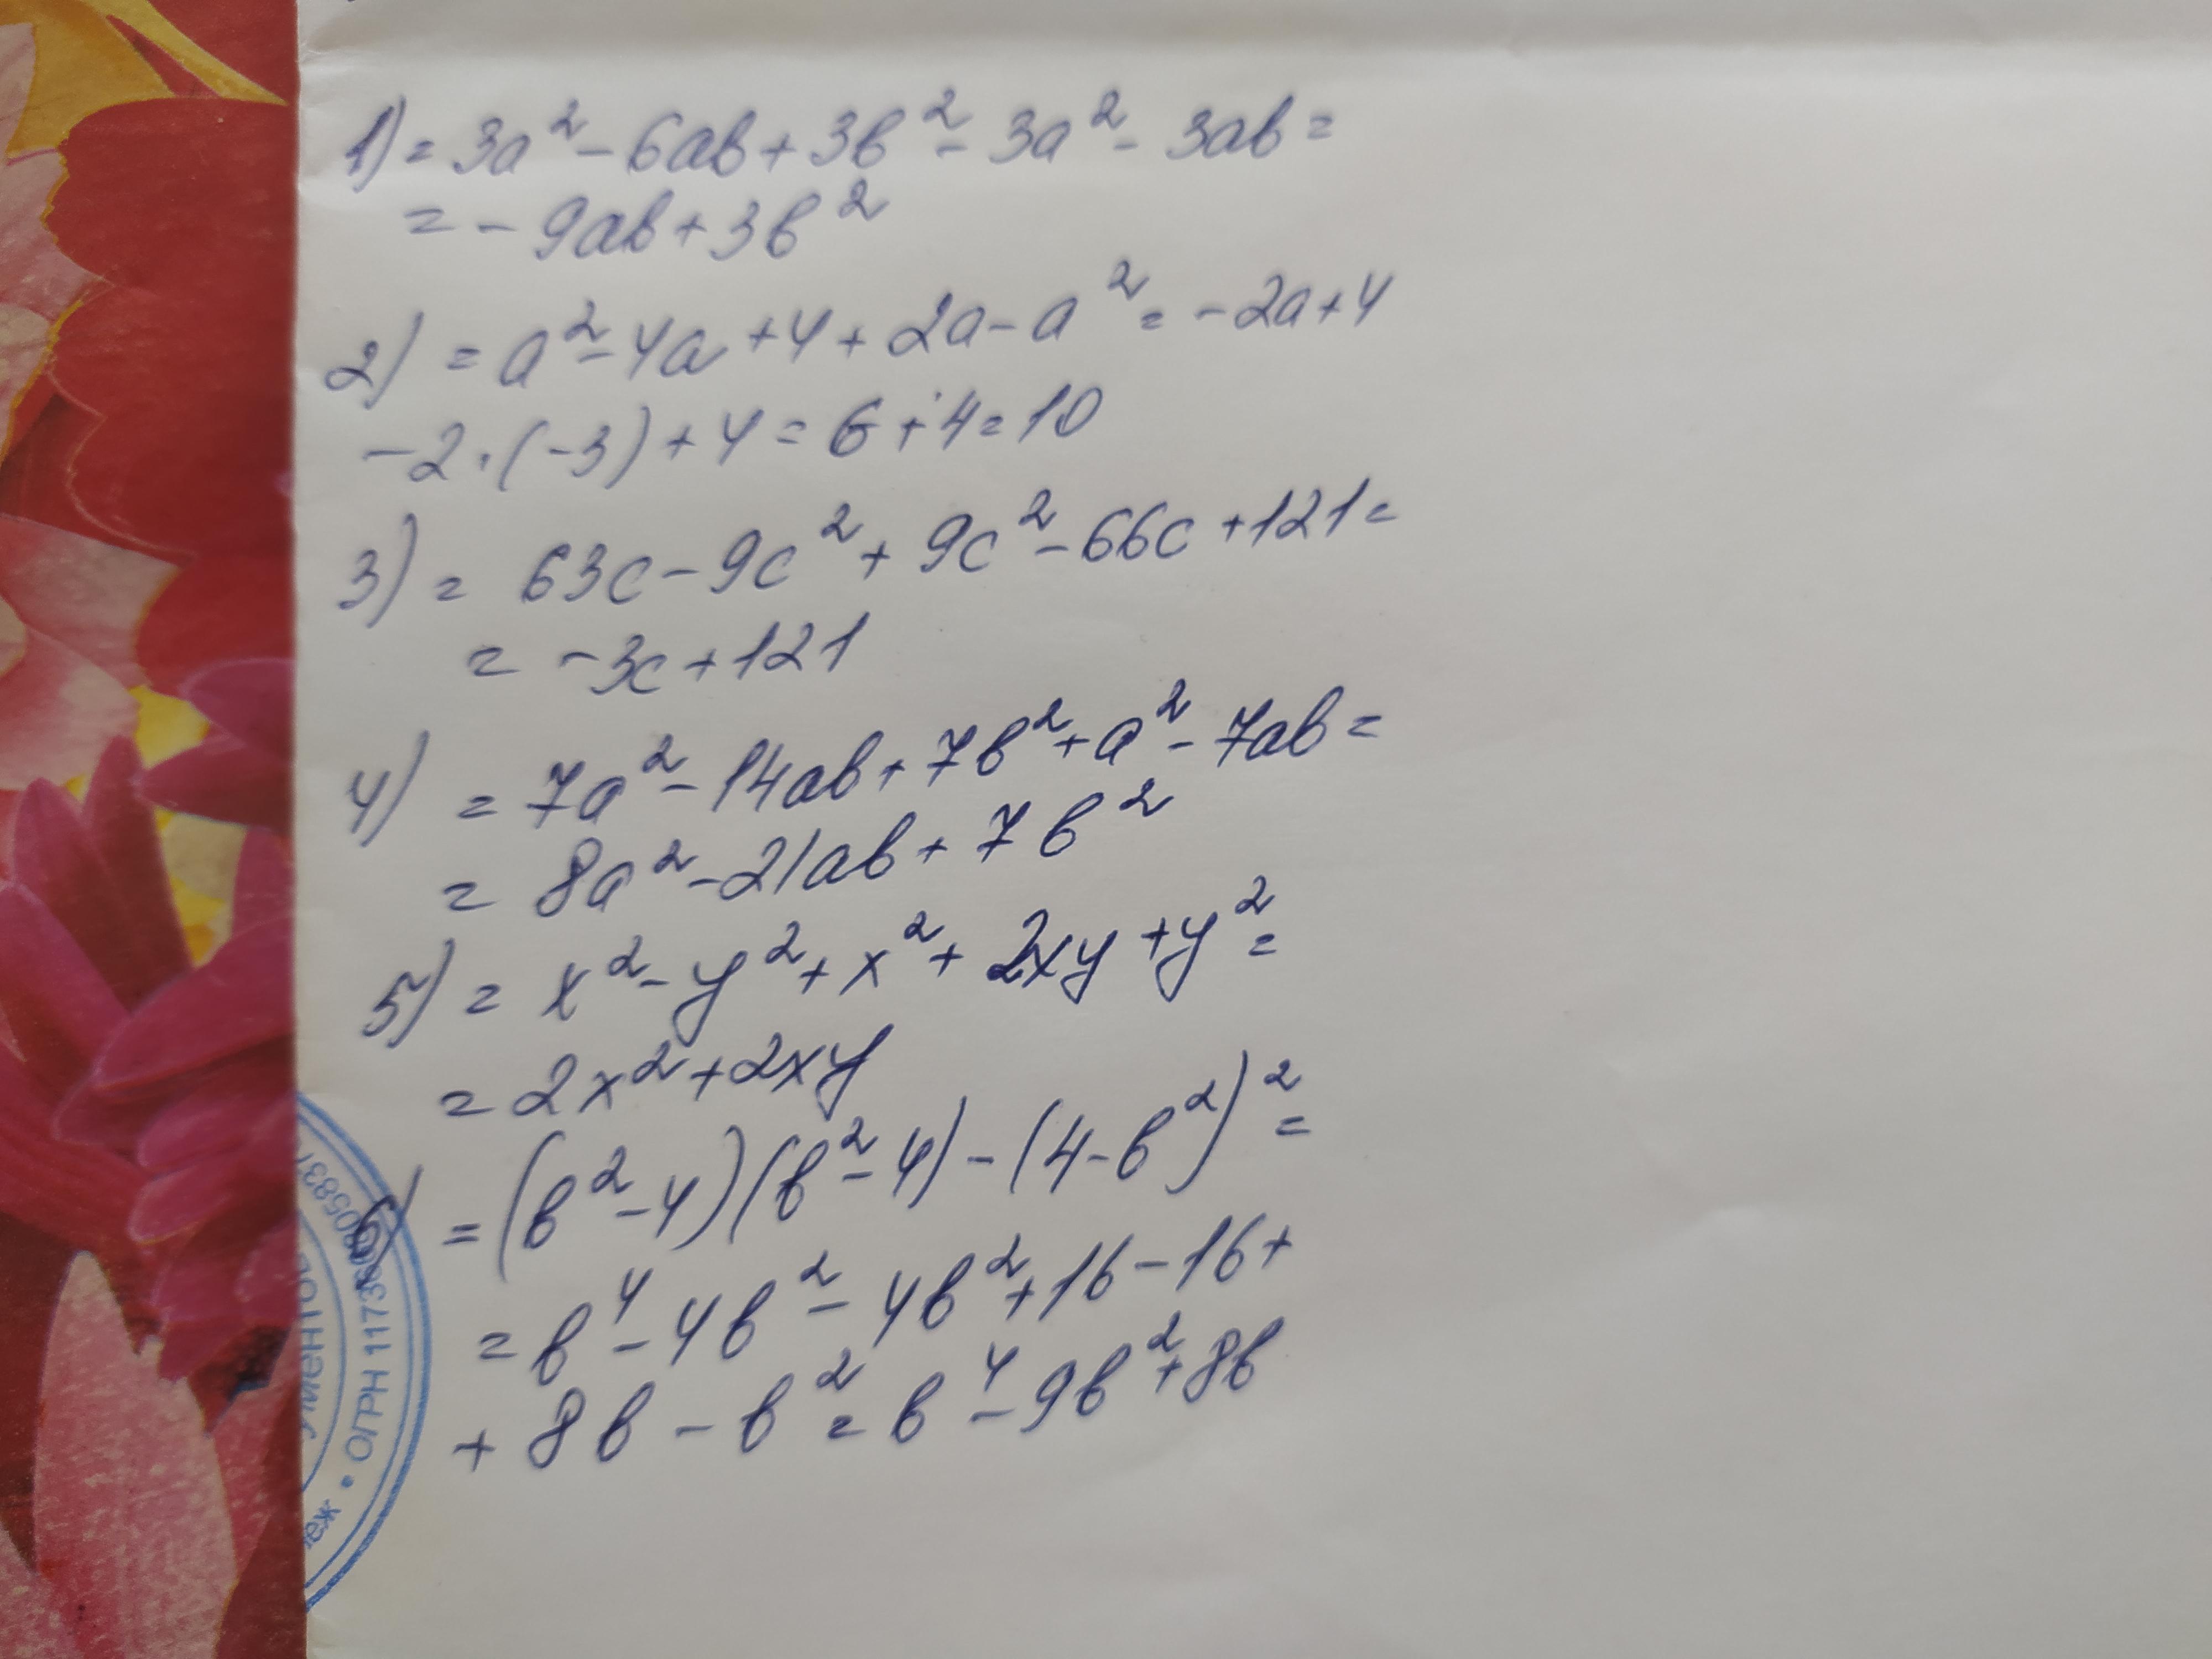 1) = 3a² - 6ab + 3b² - 3a² - 3ab =
= - 9ab + 3b²
2) = a² - 4a + 4 + 2a - a² = - 2a + 4
- 2 · (-3) + 4 = 6 + 4 = 10
3) = 63c - 9c² + 9c² - 66c + 121 =
= - 3c + 121
4) = 7a² - 14ab + 7b² + a² - 7ab =
= 8a² - 21ab + 7b²
5) = x² - y² + x² + 2xy + y² =
= 2x² + 2xy
6) = (b² - 4)(b² - 4) - (4 - b²)² =
= b⁴ - 4b² - 4b² + 16 - 16 +
+ 8b - b² = b⁴ - 9b² + 8b
• ОГРН